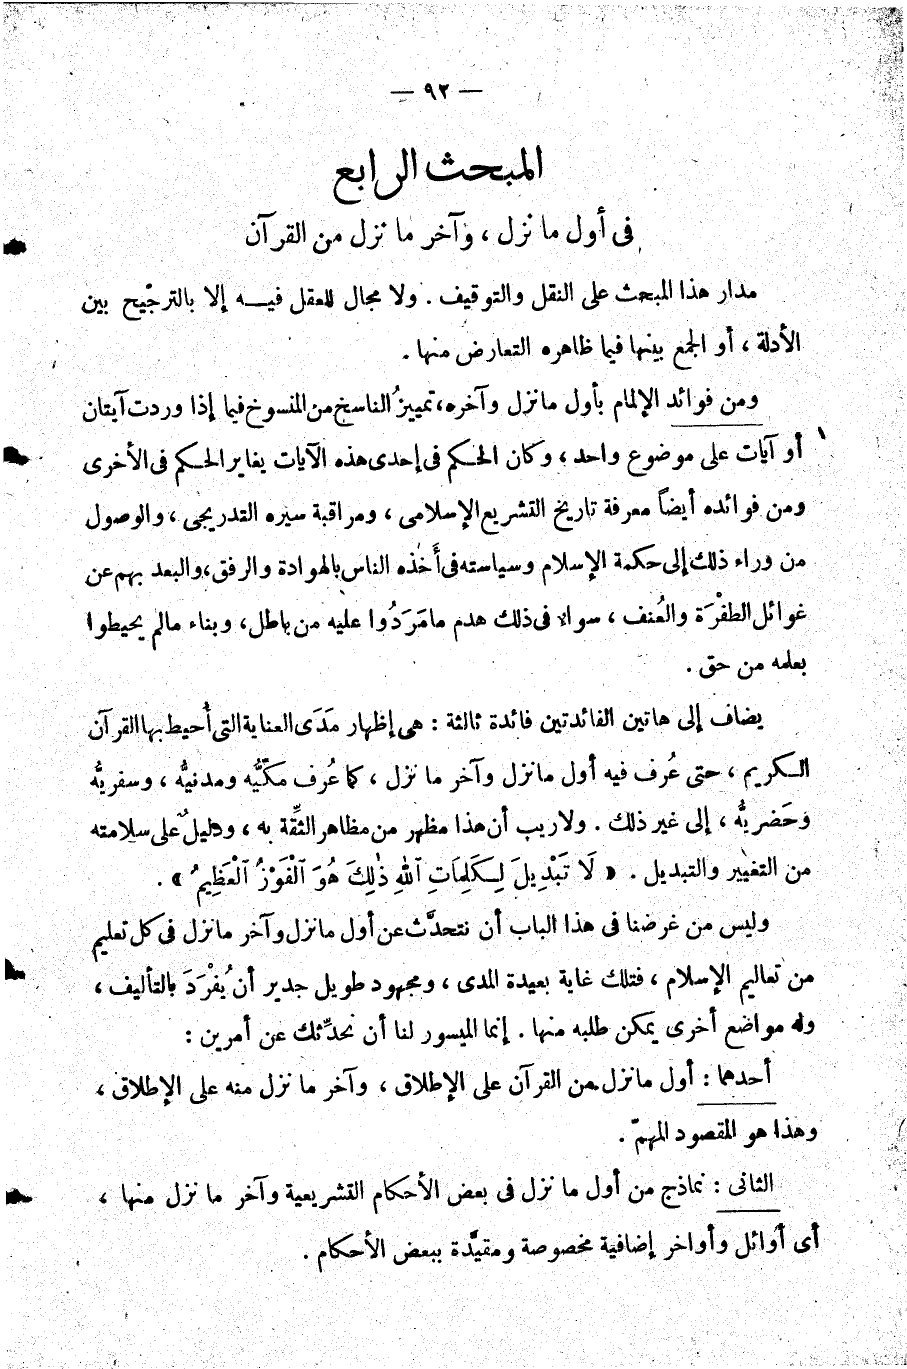 — ٩٢ —
المبحث الرابع
فى أول ما نزل ، وآخر ما نزل من القرآن
مدار هذا المبحث على النقل والتوقيف . ولا مجال للعقل فيـــه إلا بالترجيح بين
الأدلة ، أو الجمع بينها فيما ظاهره التعارض منها .
ومن فوائد الإلمام بأول مانزل وآخره، تمييزُ الناسخ من المنسوخ فيما إذا وردت آيتان
أو آيات على موضوع واحد ، وكان الحـكم فى إحدى هذه الآيات يغاير الحـكم فى الأخرى
ومن فوائده أيضاً معرفة تاريخ التشريع الإسلامى ، ومراقبة سيره التدريجى ، والوصول
من وراء ذلك إلى حكمة الإسلام وسياسته فى أَخْذه الناس بالهوادة والرفق، والبعد بهم عن
غوائل الطفْرَة والعُنف ، سواء فى ذلك هدم مامَرَدُوا عليه من باطل، وبناء مالم يحيطوا
بعلمه من حق .
يضاف إلى هاتين الفائدتين فائدة ثالثة : هى إظهار مَدَى العناية التى أُحيط بها القرآن
الـكريم ، حتى عُرف فيه أول مانزل وآخر ما نزل ، كما عُرف مكّيُّه ومدنيُّه ، وسفريُّه
وحَضَريُّه ، إلى غير ذلك . ولاريب أن هذا مظهر من مظاهر الثِّقة به ، ودليلٌ على سلامته
من التغيير والتبديل . « لَا تَبْدِيلَ لِـكَلِمَاتِ ٱللهِ ذٰلِكَ هُوَ ٱلْفَوْزُ ٱلْعَظِيمُ » .
وليس من غرضنا فى هذا الباب أن نتحدَّث عن أول مانزل وآخر مانزل فى كل تعليم
من تعاليم الإسلام ، فتلك غاية بعيدة المدى ، ومجهود طويل جدير أن يُفْرَدَ بالتأليف ،
وله مواضع أخرى يمكن طلبه منها . إنما الميسور لنا أن نحدِّثك عن أمرين :
أحدهما : أول مانزل من القرآن على الإطلاق ، وآخر ما نزل منه على الإطلاق ،
وهذا هو المقصود المهمّ .
الثانى : نماذج من أول ما نزل فى بعض الأحكام التشريعية وآخر ما نزل منها ،
أى أوائل وأواخر إضافية مخصوصة ومقيَّدة ببعض الأحكام .